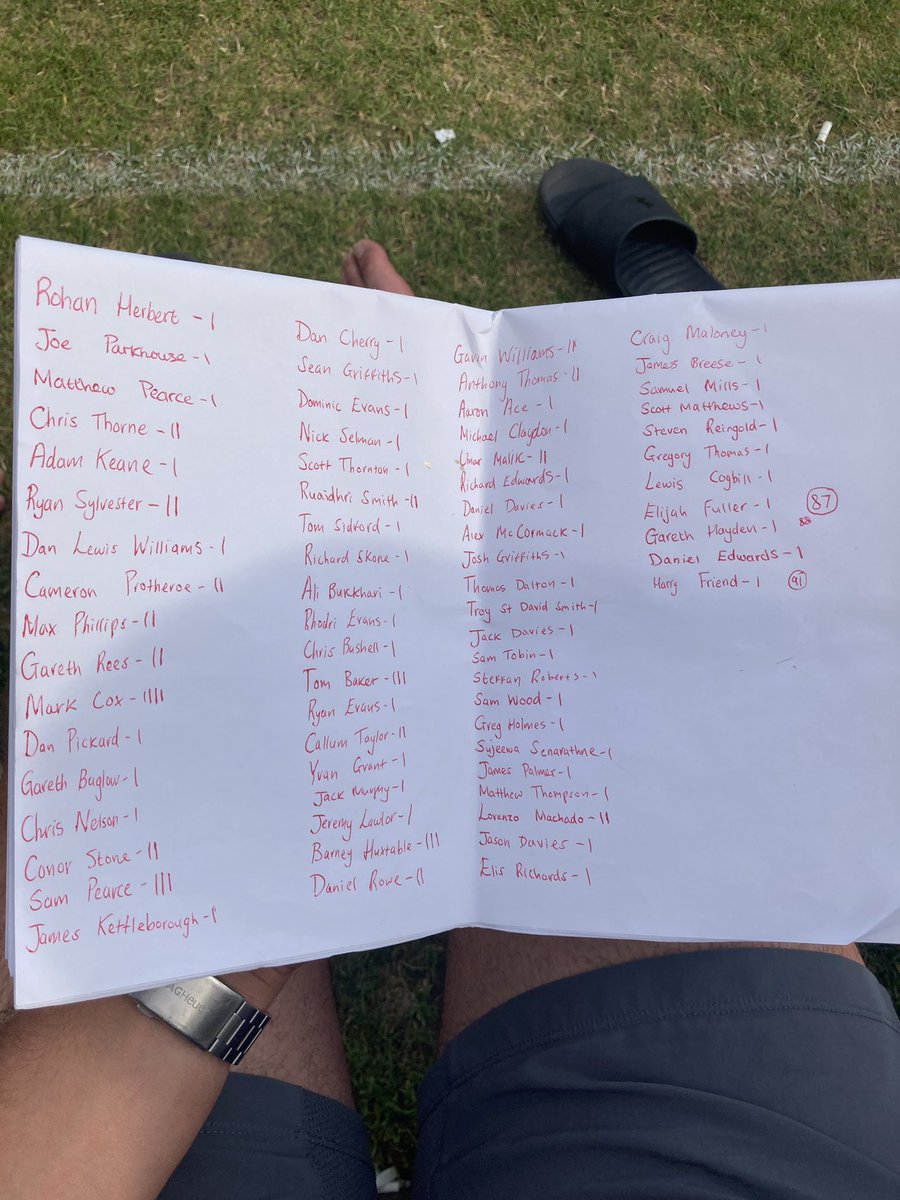 Rohan Herbert - I
Joe Parkhouse - I
Matthew Pearce - I
Chris Thorne - II
Adam Keane - I
Ryan Sylvester - II
Dan Lewis Williams - I
Cameron Protheroe - II
Max Phillips - II
Gareth Rees - II
Mark Cox - IIII
Dan Pickard - I
Gareth Baglow - I
Chris Nelson - I
Conor Stone - II
Sam Pearce - III
James Kettleborough - I
Dan Cherry - I
Sean Griffiths - I
Dominic Evans - I
Nick Selman - I
Scott Thornton - I
Ruaidhri Smith - II
Tom Sidford - I
Richard Skone - I
Ali Bukkhari - I
Rhodri Evans - I
Chris Bushell - I
Tom Baker - III
Ryan Evans - I
Callum Taylor - II
Yvan Grant - I
Jack Murphy - I
Jeremy Lawlor - I
Barney Huxtable - III
Daniel Rowe - II
Gavin Williams - II
Anthony Thomas - II
Aaron Ace - I
Michael Claydon - I
Umar Malik - II
Richard Edwards - I
Daniel Davies - I
Alex McCormack - I
Josh Griffiths - I
Thomas Dalton - I
Troy St David Smith - I
Jack Davies - I
Sam Tobin - I
Steffan Roberts - I
Sam Wood - I
Greg Holmes - I
Sujeewa Senarathne - I
James Palmer - I
Matthew Thompson - I
Lorenzo Machado - II
Jason Davies - I
Elis Richards - I
Craig Maloney - I
James Breese - I
Samuel Mills - I
Scott Matthews - I
Steven Reingold - I
Gregory Thomas - I
Lewis Cogbill - I
Elijah Fuller - I 87
Gareth Hayden - I 88
Daniel Edwards - I
Harry Friend - I 91
AGHeuer